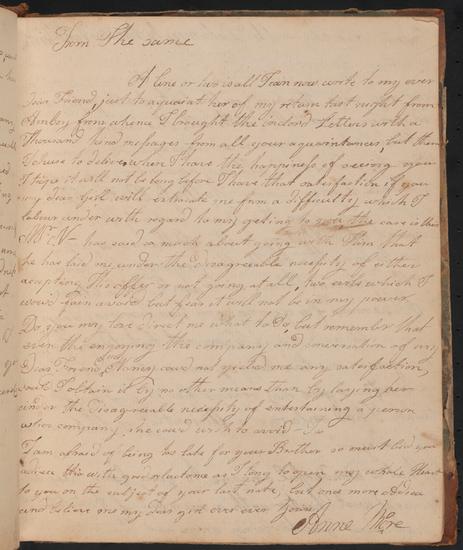 From The same
A line or two is all I can now write to my ever
dear Friend, just to acquaint her of my return last night from
Henley from whence I brought the inclosd Letters with a
Thousand kind messages from all your acquaintances but them
I chuse to deliver when I have the happiness of seeing you
I hope it will not be long before I have that satisfaction if you
my dear Girl will extricate me from a difficulty which I
labour under with regard to my getting to you the case is this
Mr. N— has said so much about going with him that
he has laid me under the disagreeable necessity of either
accepting his offer or not going at all, two evils which I
woud fain avoid but fear it will not be in my power
Do you my love direct me what to do, but remember that
even the enjoying the company and conversation of my
Dear Friend Nancy coud not yeild me any satisfaction
coud I obtain it by no other means than by laying her
under the disagreeable necessity of entertaining a person
whose company she coud wish to avoid
I am afraid of being too late for your Brother so must bid you
adieu tho with great reluctance as I long to open my whole Heart
to you on the subject of your last note, but once more Adieu
and believe me my dear girl ever ever Yours
Anne